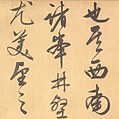 也其西南
諸峯林壑
尤美望之